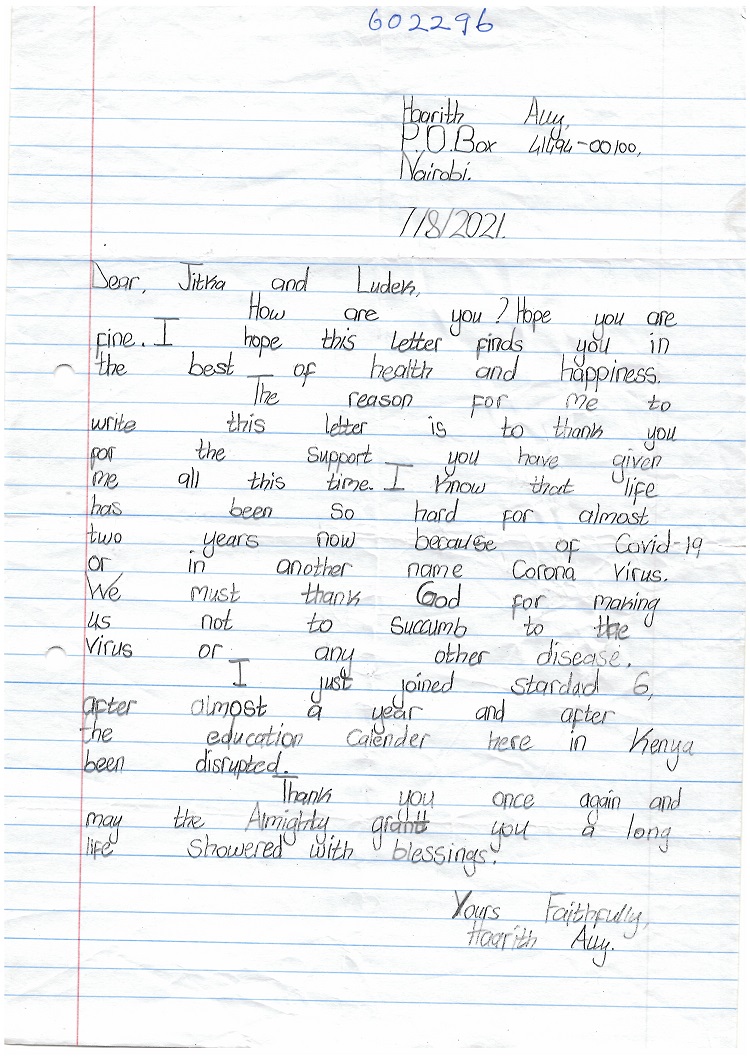 602296
Haarith Ally,
P.O.Box 41494-00100,
Nairobi.
7/8/2021.
Dear, Jitka and Ludek,
How are you? Hope you are
fine. I hope this letter finds you in
the best of health and happiness.
The reason for me to
write this letter is to thank you
for the support you have given
me all this time. I know that life
has been so hard for almost
two years now because of Covid-19
or in another name Corona Virus.
We must thank God for making
us not to succumb to the
virus or any other disease.
I just joined stardad 6,
after almost a year and after
the education Calender here in Kenya
been disrupted.
Thank you once again and
may the Almighty grant you a long
life showered with blessings.
Yours Faithfully,
Haarith Ally.